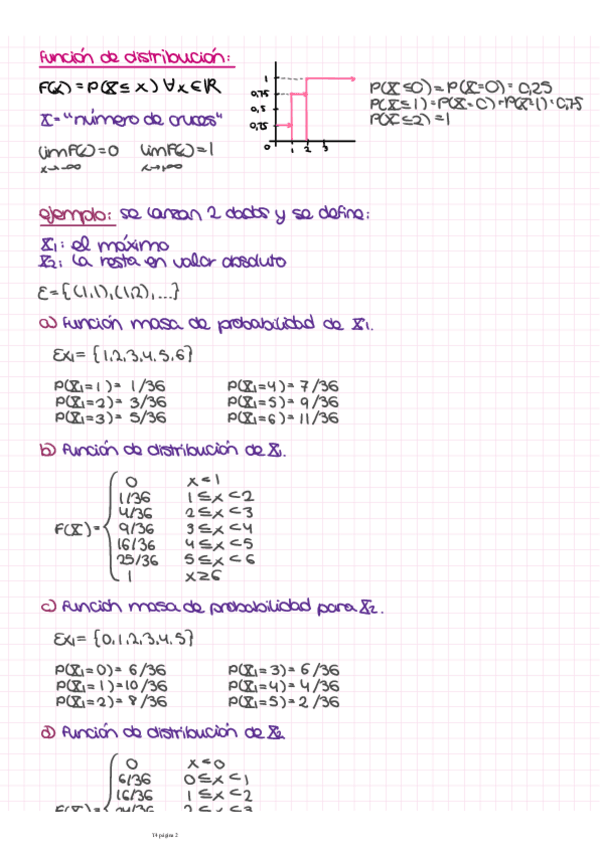 Función de distribución:
F(x) = P(X ≤ x) ∀x ∈ ℝ
X = "número de cruces"
lim F(x) = 0 lim F(x) = 1
x→-∞ x→+∞
1
0,75
0,5
0,25
0 1 2 3
P(X ≤ 0) = P(X = 0) = 0,25
P(X ≤ 1) = P(X = 0) + P(X = 1) = 0,75
P(X ≤ 2) = 1
ejemplo: se lanzan 2 dados y se define:
X₁: el máximo
X₂: la resta en valor absoluto
E = {(1,1),(1,2),...}
a) Función masa de probabilidad de X₁.
Ex₁ = {1,2,3,4,5,6}
P(X₁=1) = 1/36 P(X₁=4) = 7/36
P(X₁=2) = 3/36 P(X₁=5) = 9/36
P(X₁=3) = 5/36 P(X₁=6) = 11/36
b) Función de distribución de X₁.
0 x < 1
1/36 1 ≤ x < 2
4/36 2 ≤ x < 3
F(X) = 9/36 3 ≤ x < 4
16/36 4 ≤ x < 5
25/36 5 ≤ x < 6
1 x ≥ 6
c) Función masa de probabilidad para X₂.
Ex₁ = {0,1,2,3,4,5}
P(X₁=0) = 6/36 P(X₁=3) = 6/36
P(X₁=1) = 10/36 P(X₁=4) = 4/36
P(X₁=2) = 8/36 P(X₁=5) = 2/36
d) Función de distribución de X₂
0 x < 0
6/36 0 ≤ x < 1
16/36 1 ≤ x < 2
F(X) = 24/36 2 ≤ x < 3
T4 página 2